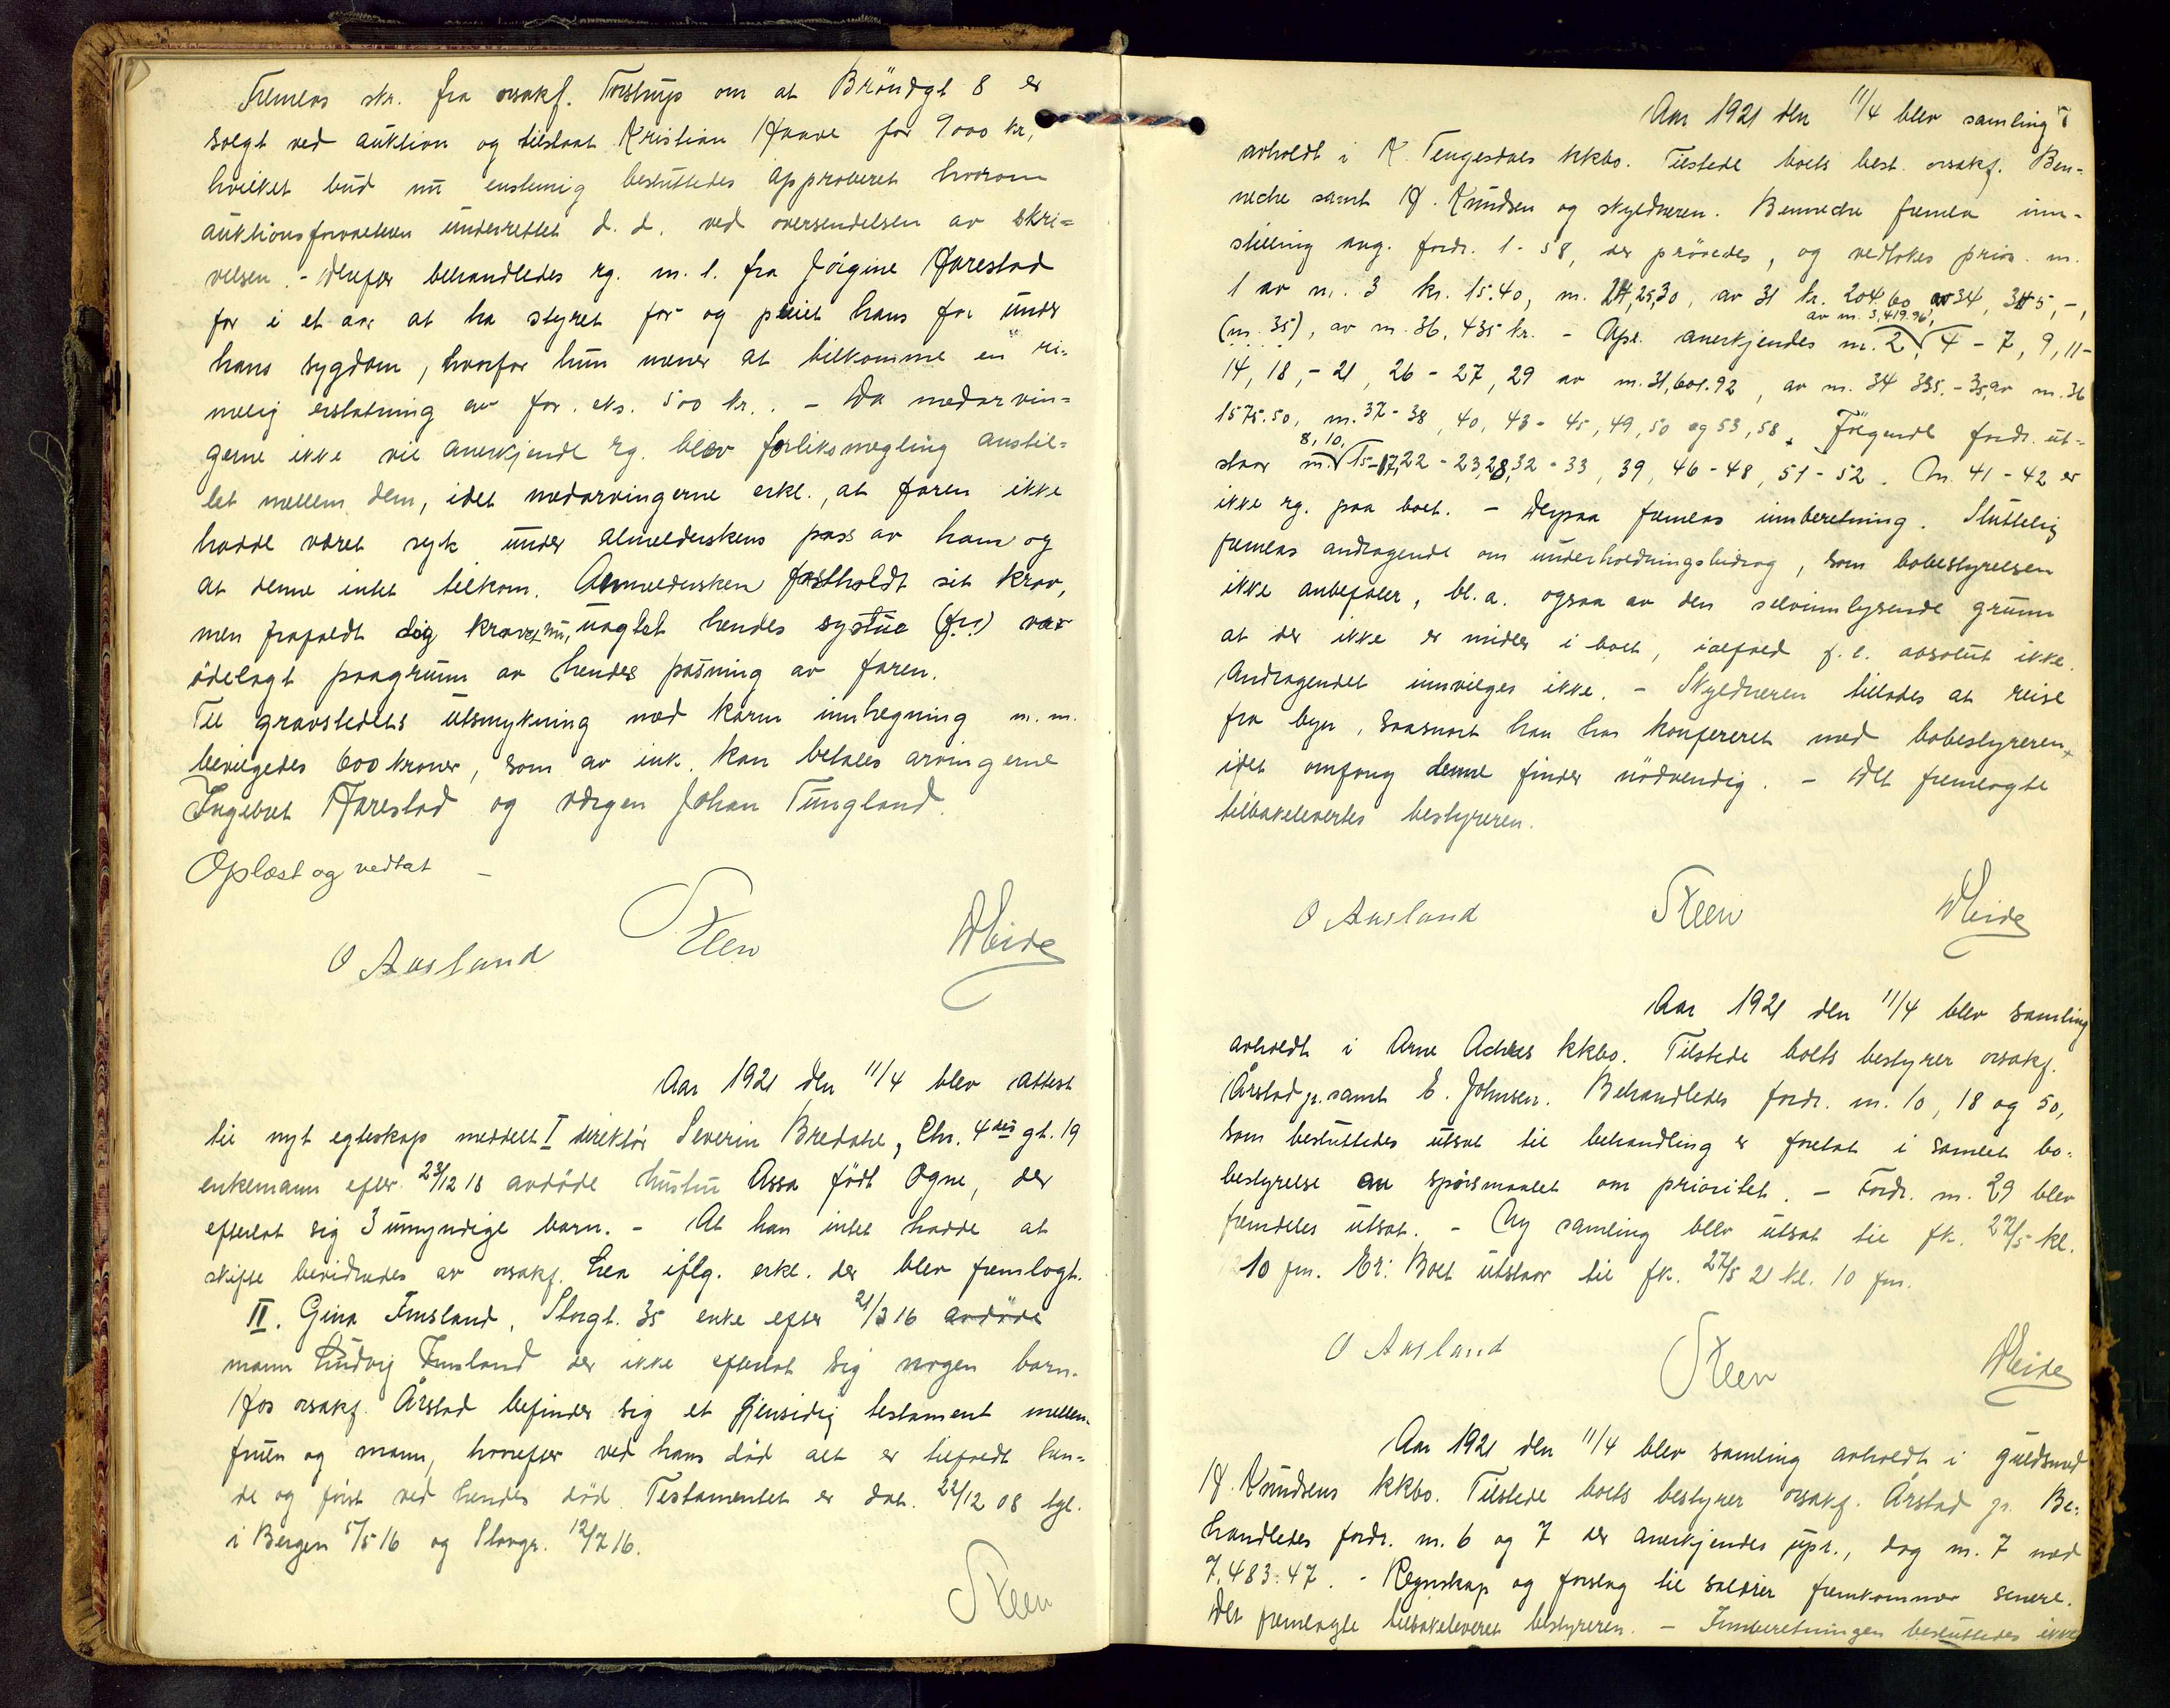 Fremlas skr. fra orsakf. Torstrup om at Bröndgt 8 er
solgt ved auktion og tilslaat Kristian Haave for 9000 kr,
hvilket bud nu enstemig besluttedes approberet hvorom
auktionsforvalteren underrettet d. d. ved oversendelsen av skri=
velsen. - Derefter behandledes rg. m. l. fra Jörgine Harestad
for i et aar at ha styret for og pleiet hans far under
hans sygdom, hvorfor hun mener at tilkomme en ri=
melig erstatning av for. eks. 500 kr. - Da medarvin=
gerne ikke vil anerkjende rg. blev forliksmegling anstil=
let mellem dem, idet medarvingerne erkl., at faren ikke
hadde været syk under anmelderskens pass av ham og
at denne intet tilkom. Anmeldersken fastholdt sit krav,
men frafaldt dog kravet nu, uagtet hendes systue (fr:) var
ödelagt paagrunn av hendes pasning av faren.
Til gravstedets utsmykning med karm innhegning m. m.
bevilgedes 600 kroner, som av ink. kan betales arvingerne
Ingebret Harestad og værgen Johan Tungland.
Oplæst og vedtat -
O Ausland Steen WHeide
Aar 1921 den 11/4 blev attest
til nyt egteskap meddelt I direktör Severin Bredahl, Chr. 4des gt. 19
enkemann efter 23/12 18 avdöde hustru Assa födt Ogne, der
efterlot sig 3 umyndige barn. - At han intet hadde at
skifte bevidnedes av orsakf. Lea iflg. erkl. der blev fremlagt.
II. Gina Imsland, Storgt. 35 enke efter 21/3 16 avdöde
mann Ludvig Imsland der ikke efterlot sig nogen barn.
Hos orsakf. Årstad befinder sig et gjensidig testament mellem
fruen og mann, hvorefter ved hans död alt er tilfaldt hen=
de og först ved hendes död. Testamentet er dat. 22/12 08 tgl.
i Bergen 5/5 16 og Stavgr. 12/7 16.
Steen
Aar 1921 den 11/4 blev samling
avholdt i K. Tengesdals kkbo. Tilstede boets best. orsakf. Ben=
neche samt H. Knudsen og skyldneren. Benneche fremla inn=
stilling ang. fordr. 1 - 58, der prövedes, og vedtokes prior. m.
1 av n. 3 kr. 15.40, m. 24, 25, 30, av 31 kr. 204.60, av 34, 345,-,
(m. 35), av m. 36, 435 kr. - Upr. anerkjendes m. 2, av m. 3, 419.96, 4 - 7, 9, 11-
14, 18, - 21, 26 - 27, 29 av m. 31, 601.92, av m. 34 335.- 35, av m. 36
1575.50, m. 37 - 38, 40, 43 - 45, 49, 50 og 53, 58. Fölgende fordr. ut=
staar m. 8, 10, 15-17, 22 - 23, 28, 32 - 33, 39, 46 - 48, 51 - 52. M. 41 - 42 er
ikke rg. paa boet. - Derpaa fremlas innberetning. Sluttelig
fremlas andragende om underholdningsbidrag, som bobestyrelsen
ikke anbefaler, bl. a. ogsaa av den selvinnlysende grunn
at der ikke er midler i boet, ialfald f. t. absolut ikke.
Andragendet innvilges ikke. - Skyldneren tillodes at reise
fra byen, saasnart han har konfereret med bobestyreren
i det omfang denne finder nödvendig. - Det fremlagte
tilbakelevertes bestyreren.
O Ausland Steen WHeide
Aar 1921 den 11/4 blev samling
avholdt i Arne Achres kkbo. Tilstede boets bestyrer orsakf.
Årstad jr. samt E. Johnsen. Behandledes fordr. m. 10, 18 og 50,
som besluttedes utsat til behandling er foretat i samlet bo=
bestyrelse av spörsmaalet om prioritet. - Fordr. m. 29 blev
fremdeles utsat. - Ny samling blev utsat til fk. 27/5 kl.
10 fm. Er: Boet utstaar til fk. 27/5 21 kl. 10 fm.
O Ausland Steen WHeide
Aar 1921 den 11/4 blev samling avholdt i guldsmed
H. Knudsens kkbo. Tilstede boets bestyrer orsakf. Årstad jr. Be=
handledes fordr. m. 6 og 7 der anerkjendes upr., dog m. 7 med
7.483.47. - Regnskap og forslag til salærer fremkommer senere.
Det fremlagte tilbakeleveret bestyreren. - Innberetningen besluttedes ikke